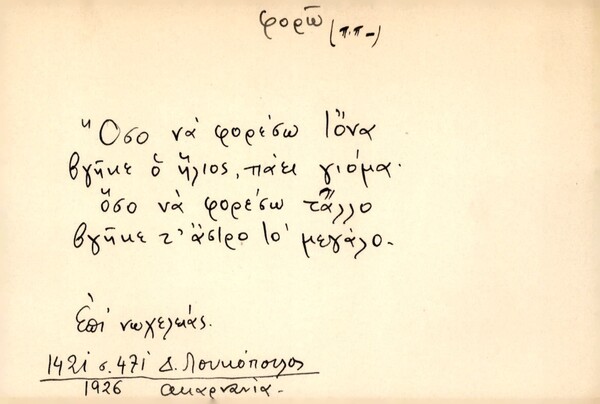 φορῶ (π.π-)
"Ὅσο νὰ φορέσω τὅνα
βγῆκε ὁ ἥλιος, πάει γιόμα.
ὅσο νὰ φορέσω τἄλλο
βγῆκε τ' ἄστρο το' μεγάλο.
Ἐπὶ νωχελείας.
1421 σ. 471 Δ. Λουκόπουλος
1926 Ακαρνανία.